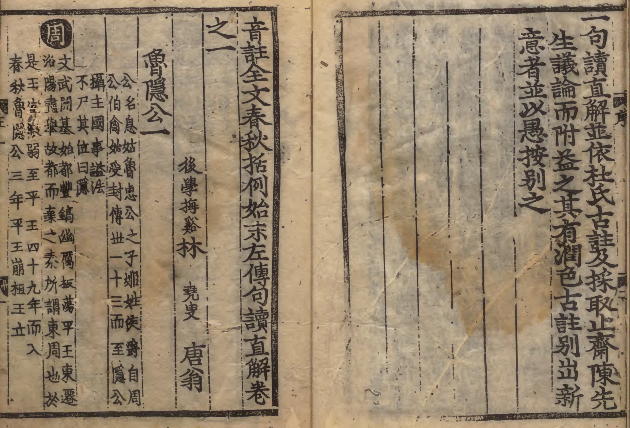 一句讀直解並依杜氏古註及採取止齋陳先
生議論而附益之其有潤色古註別出新
意者並以愚按別之
音註全文春秋括例始末左傳句讀直解卷
之一
後學梅谿林 堯叟 唐翁
魯隱公一
公名息姑魯惠公之子姬姓侯爵自周
公伯禽始受封傳世一十三而至隱公
攝主國事謚法
不尸其位曰隱
周
文武開基始都豐鎬幽厲板蕩平王東遷
洛陽 故都而棄之素所謂東周也於
是王室微弱至平王四十九年而入
春秋魯隱公三年平王崩桓王立